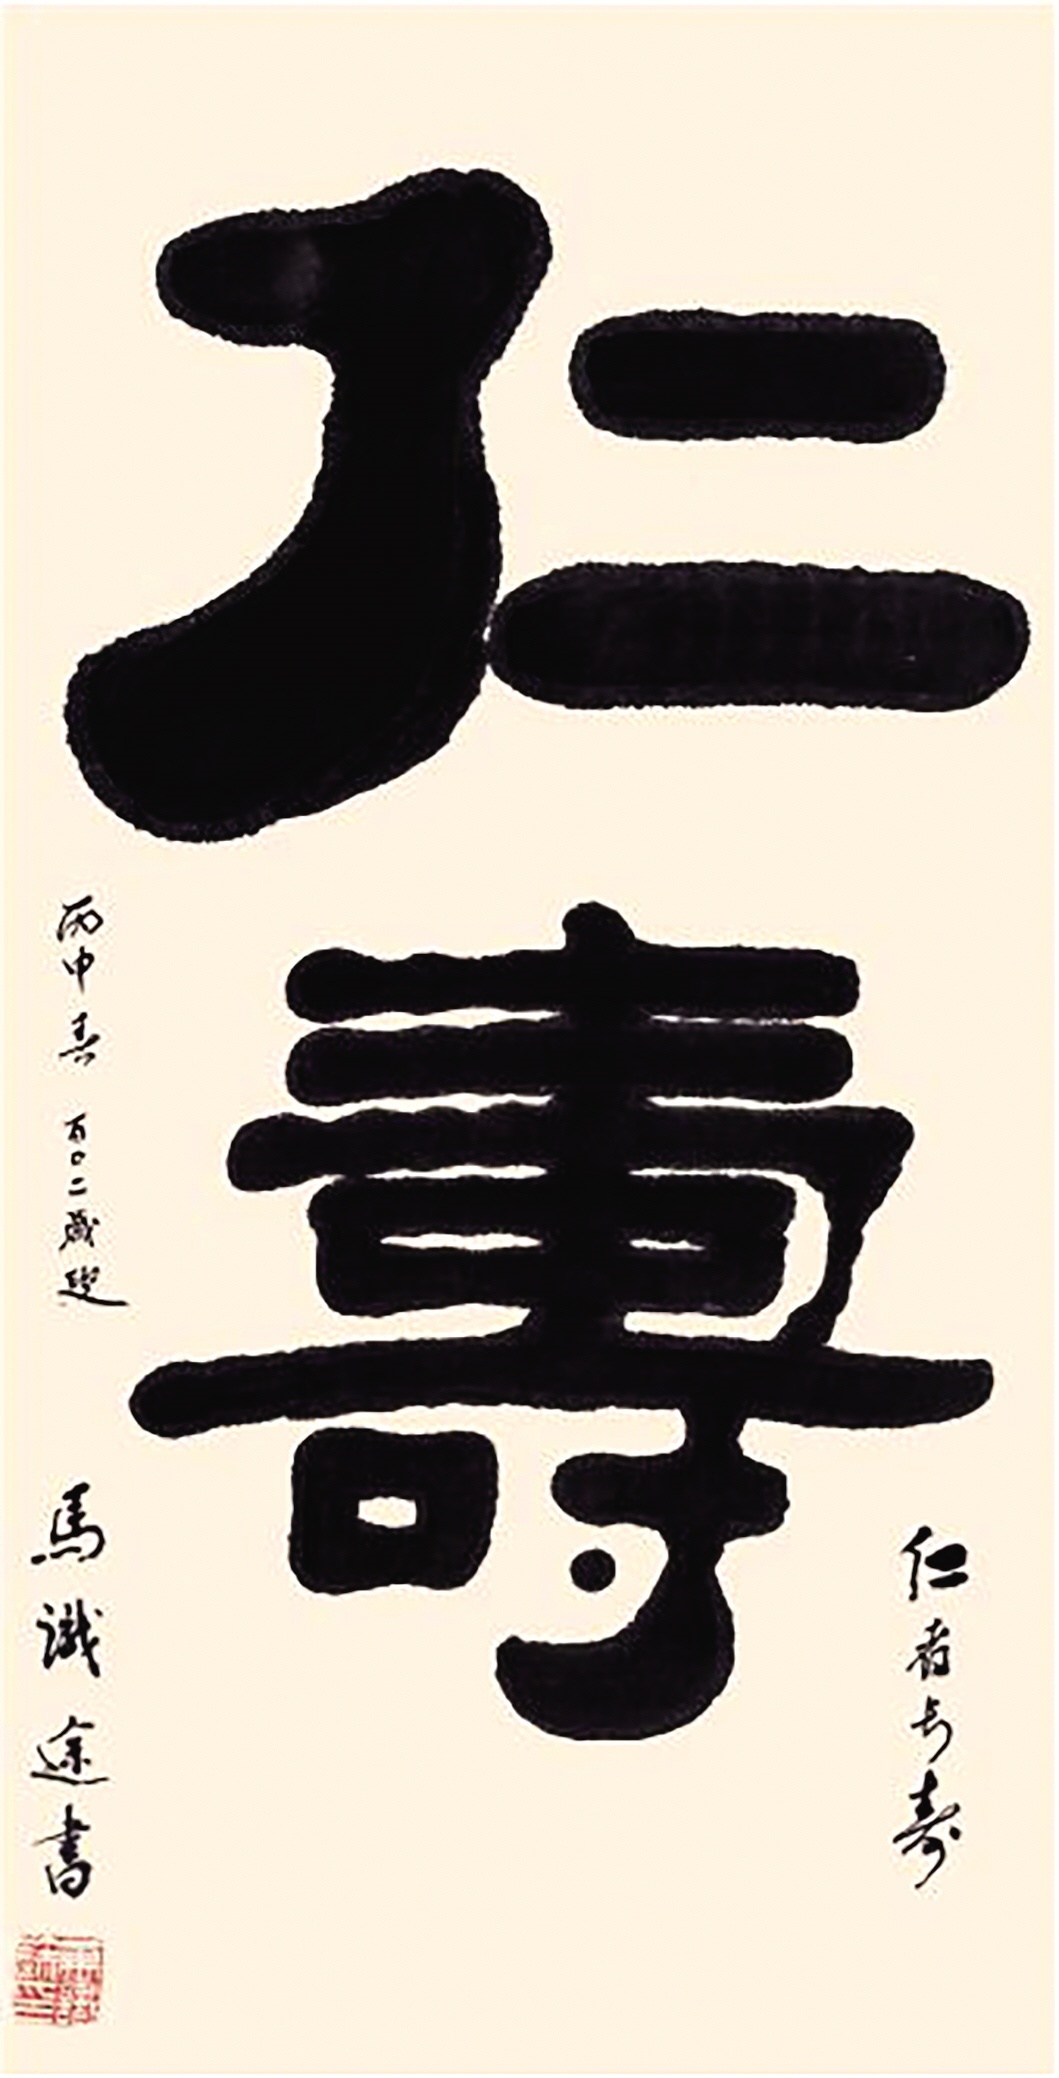 仁壽
仁者长寿
丙申春 百〇二歲叟
馬識途書